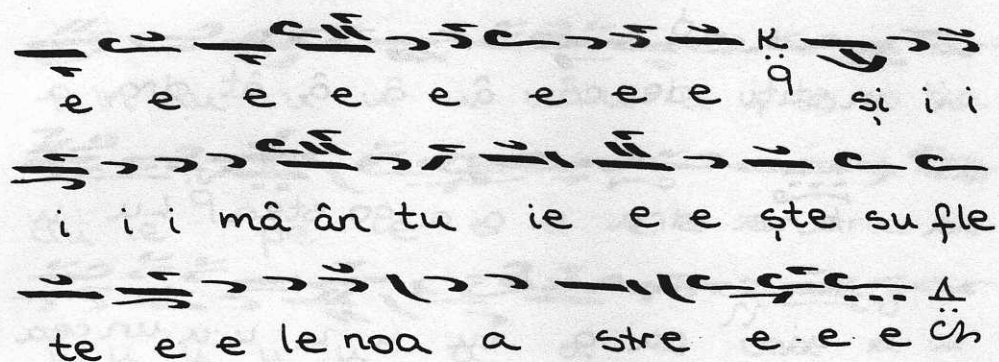 e e e e e e e e q și i i
i i i mâ ân tu ie e e ște su fle
te e e le noa a stre e e e